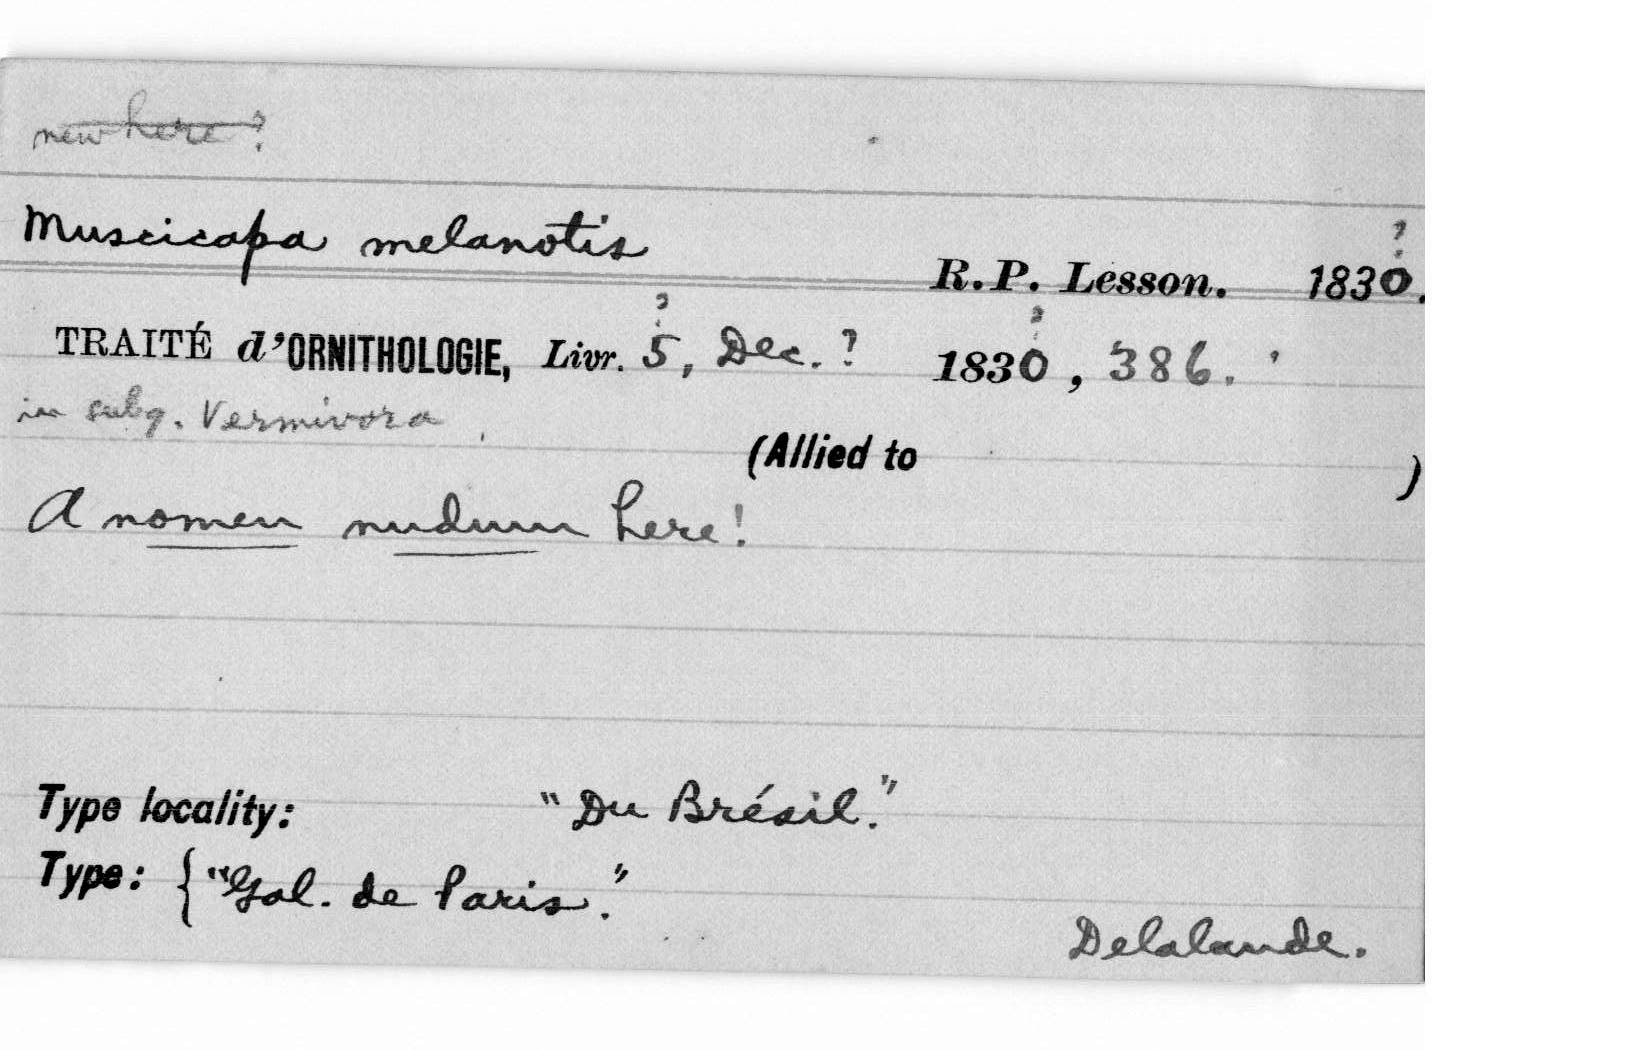 new here?
Muscicapa melanotis R.P. Lesson. 1830?.
TRAITÉ d'ORNITHOLOGIE, Livr. 5?, Dec.? 1830?, 386.
in subg. Vermivora
(Allied to )
A nomen nudum here!
Type locality: "Du Brésil."
Type: { "Gal. de Paris."
Delalande.